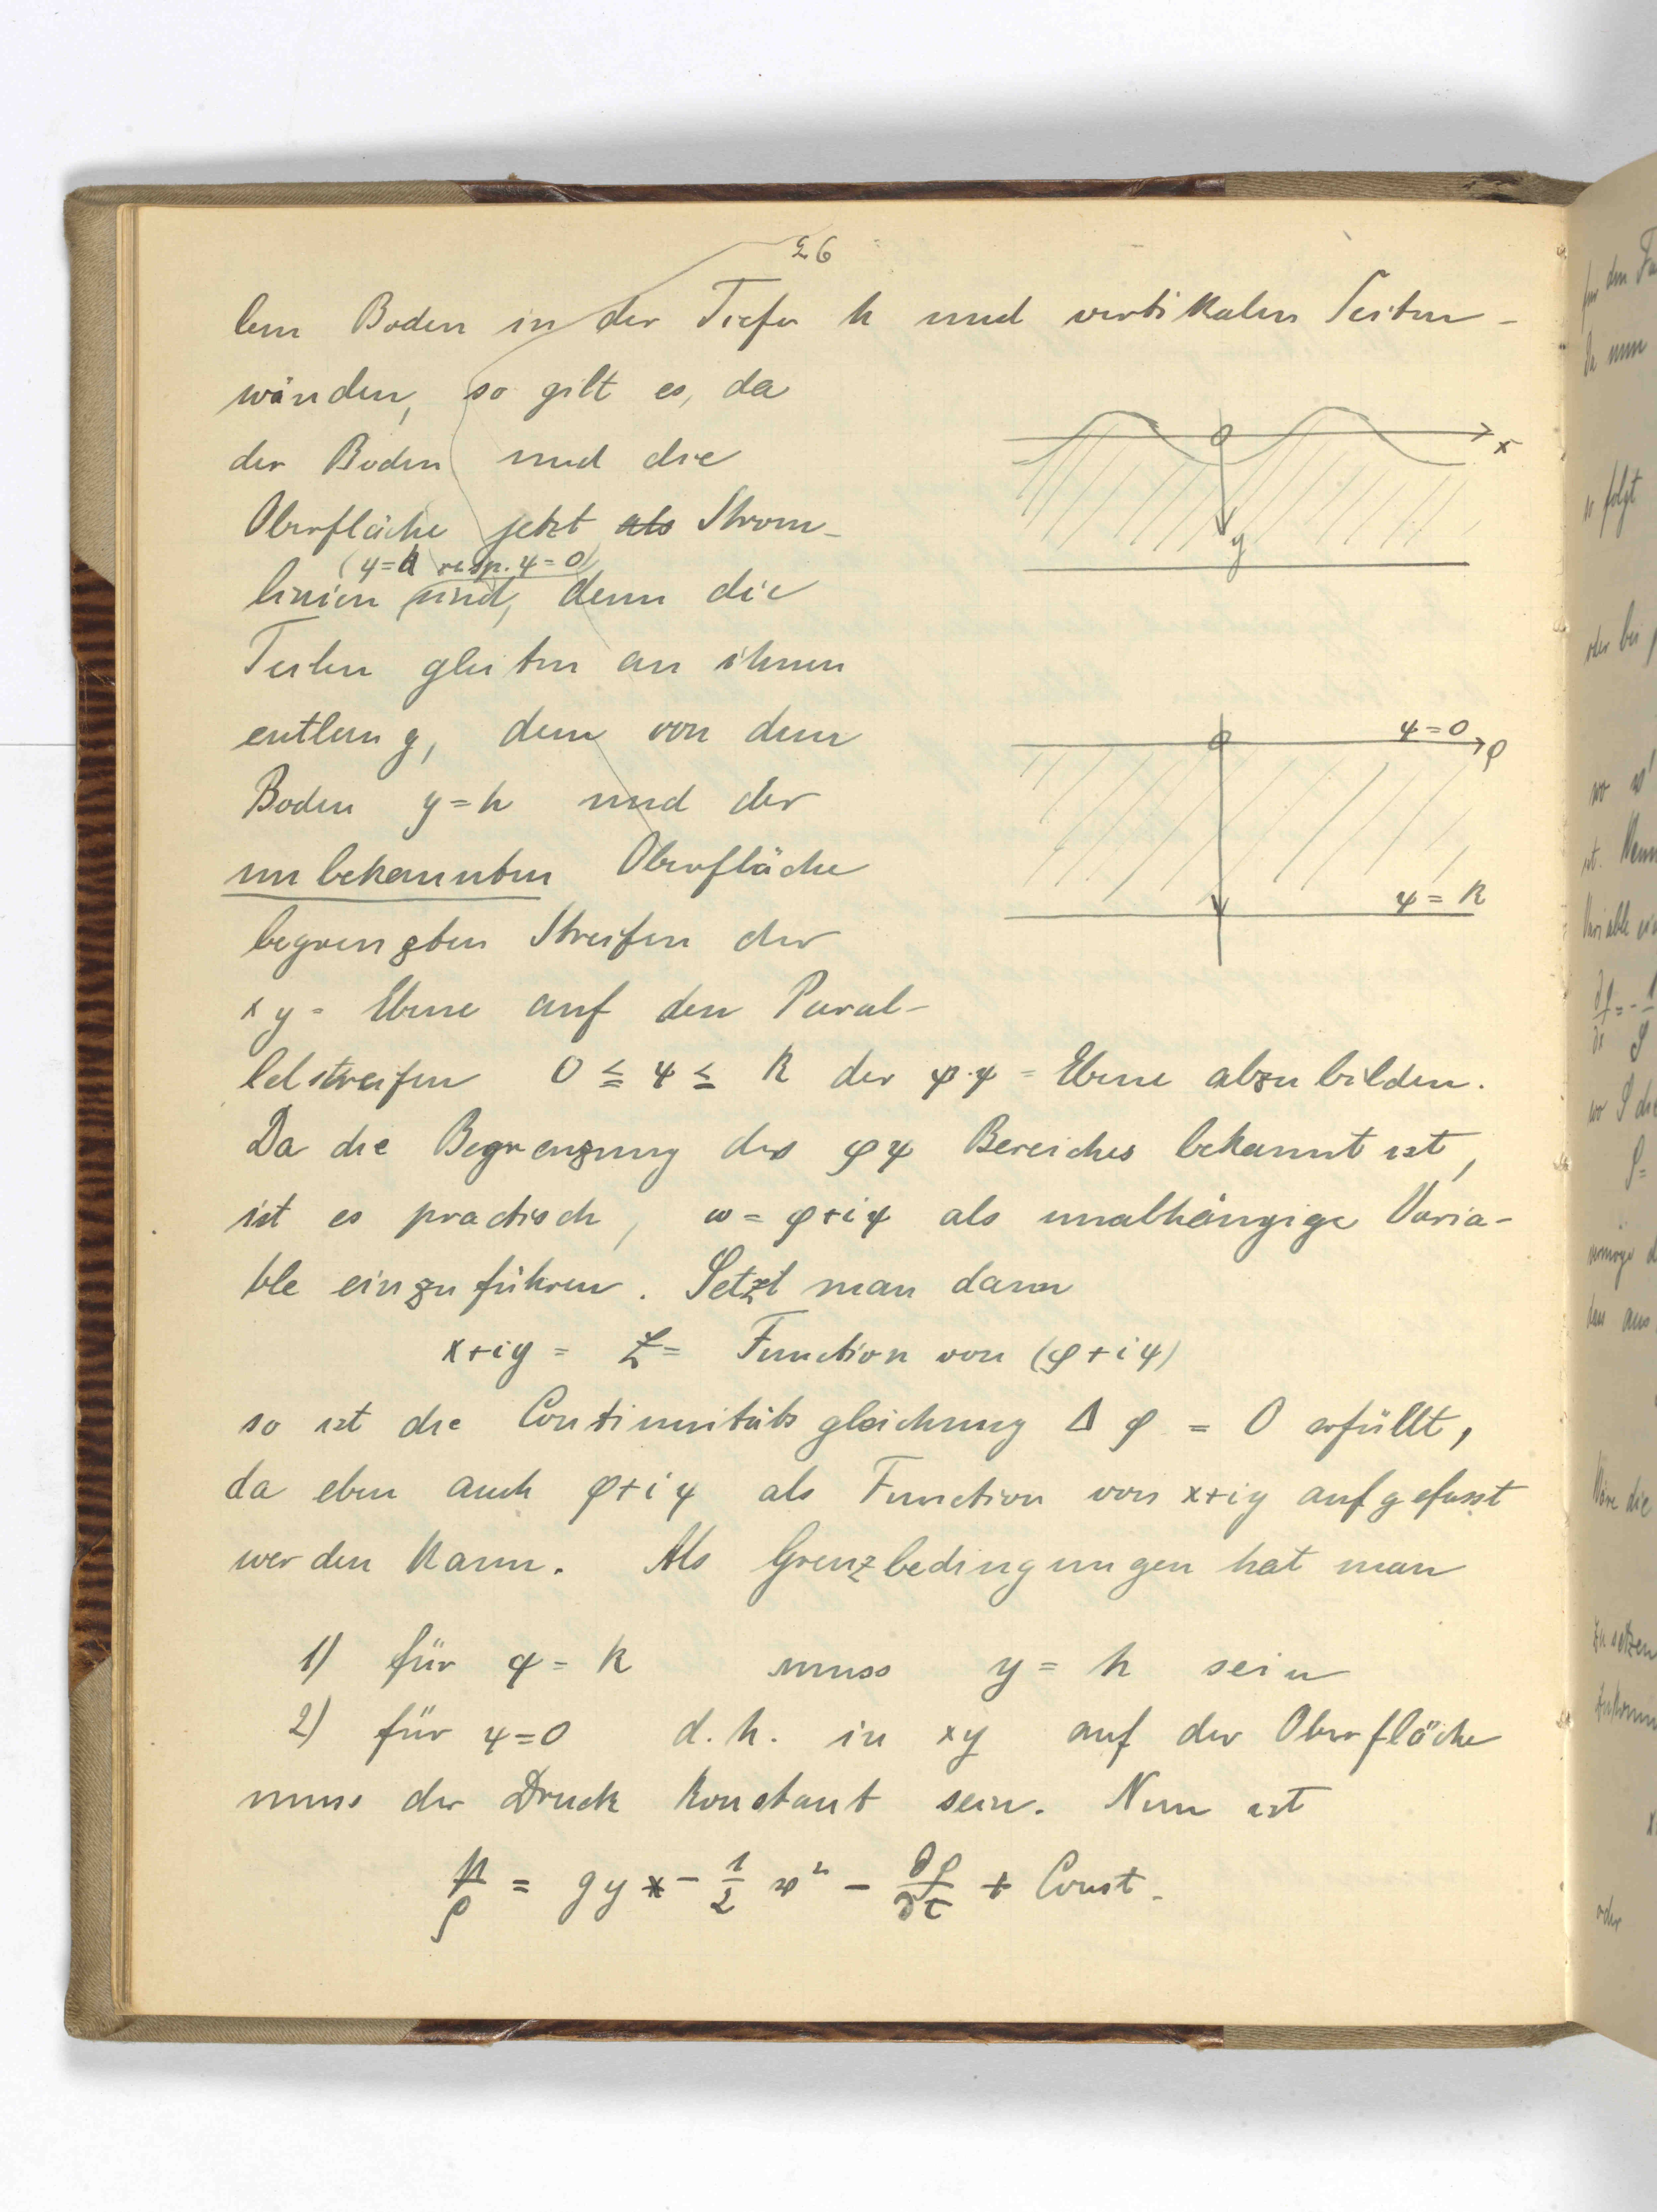 26
lem Boden in der Tiefe h und vertikalen Seiten-
wänden, so gilt es, da
der Boden und die
Oberfläche jetzt als Strom-
(ψ=k resp. ψ=0)
linien sind, denn die
Teilen gleiten an ihnen
entlang, den von dem
Boden y=h und der
unbekannten Oberfläche
begrenzten Streifen der
xy-Ebene auf den Paral-
lelstreifen 0 ≦ ψ ≦ k der φ·ψ-Ebene abzubilden.
Da die Begrenzung des φψ Bereiches bekannt ist,
ist es practisch, w = φ+iψ als unabhängige Varia-
ble einzuführen. Setzt man dann
x+iy = z = Function von (φ+iψ)
so ist die Continuitätsgleichung Δ φ = 0 erfüllt,
da eben auch φ+iψ als Function von x+iy aufgefasst
werden kann. Als Grenzbedingungen hat man
1) für ψ = k muss y = h sein
2) für ψ=0 d.h. in xy auf der Oberfläche
muss der Druck konstant sein. Nun ist
p/ρ = gy - 1/2 w² - ∂φ/∂t + Const.
x
y
ψ=0
φ
ψ = k